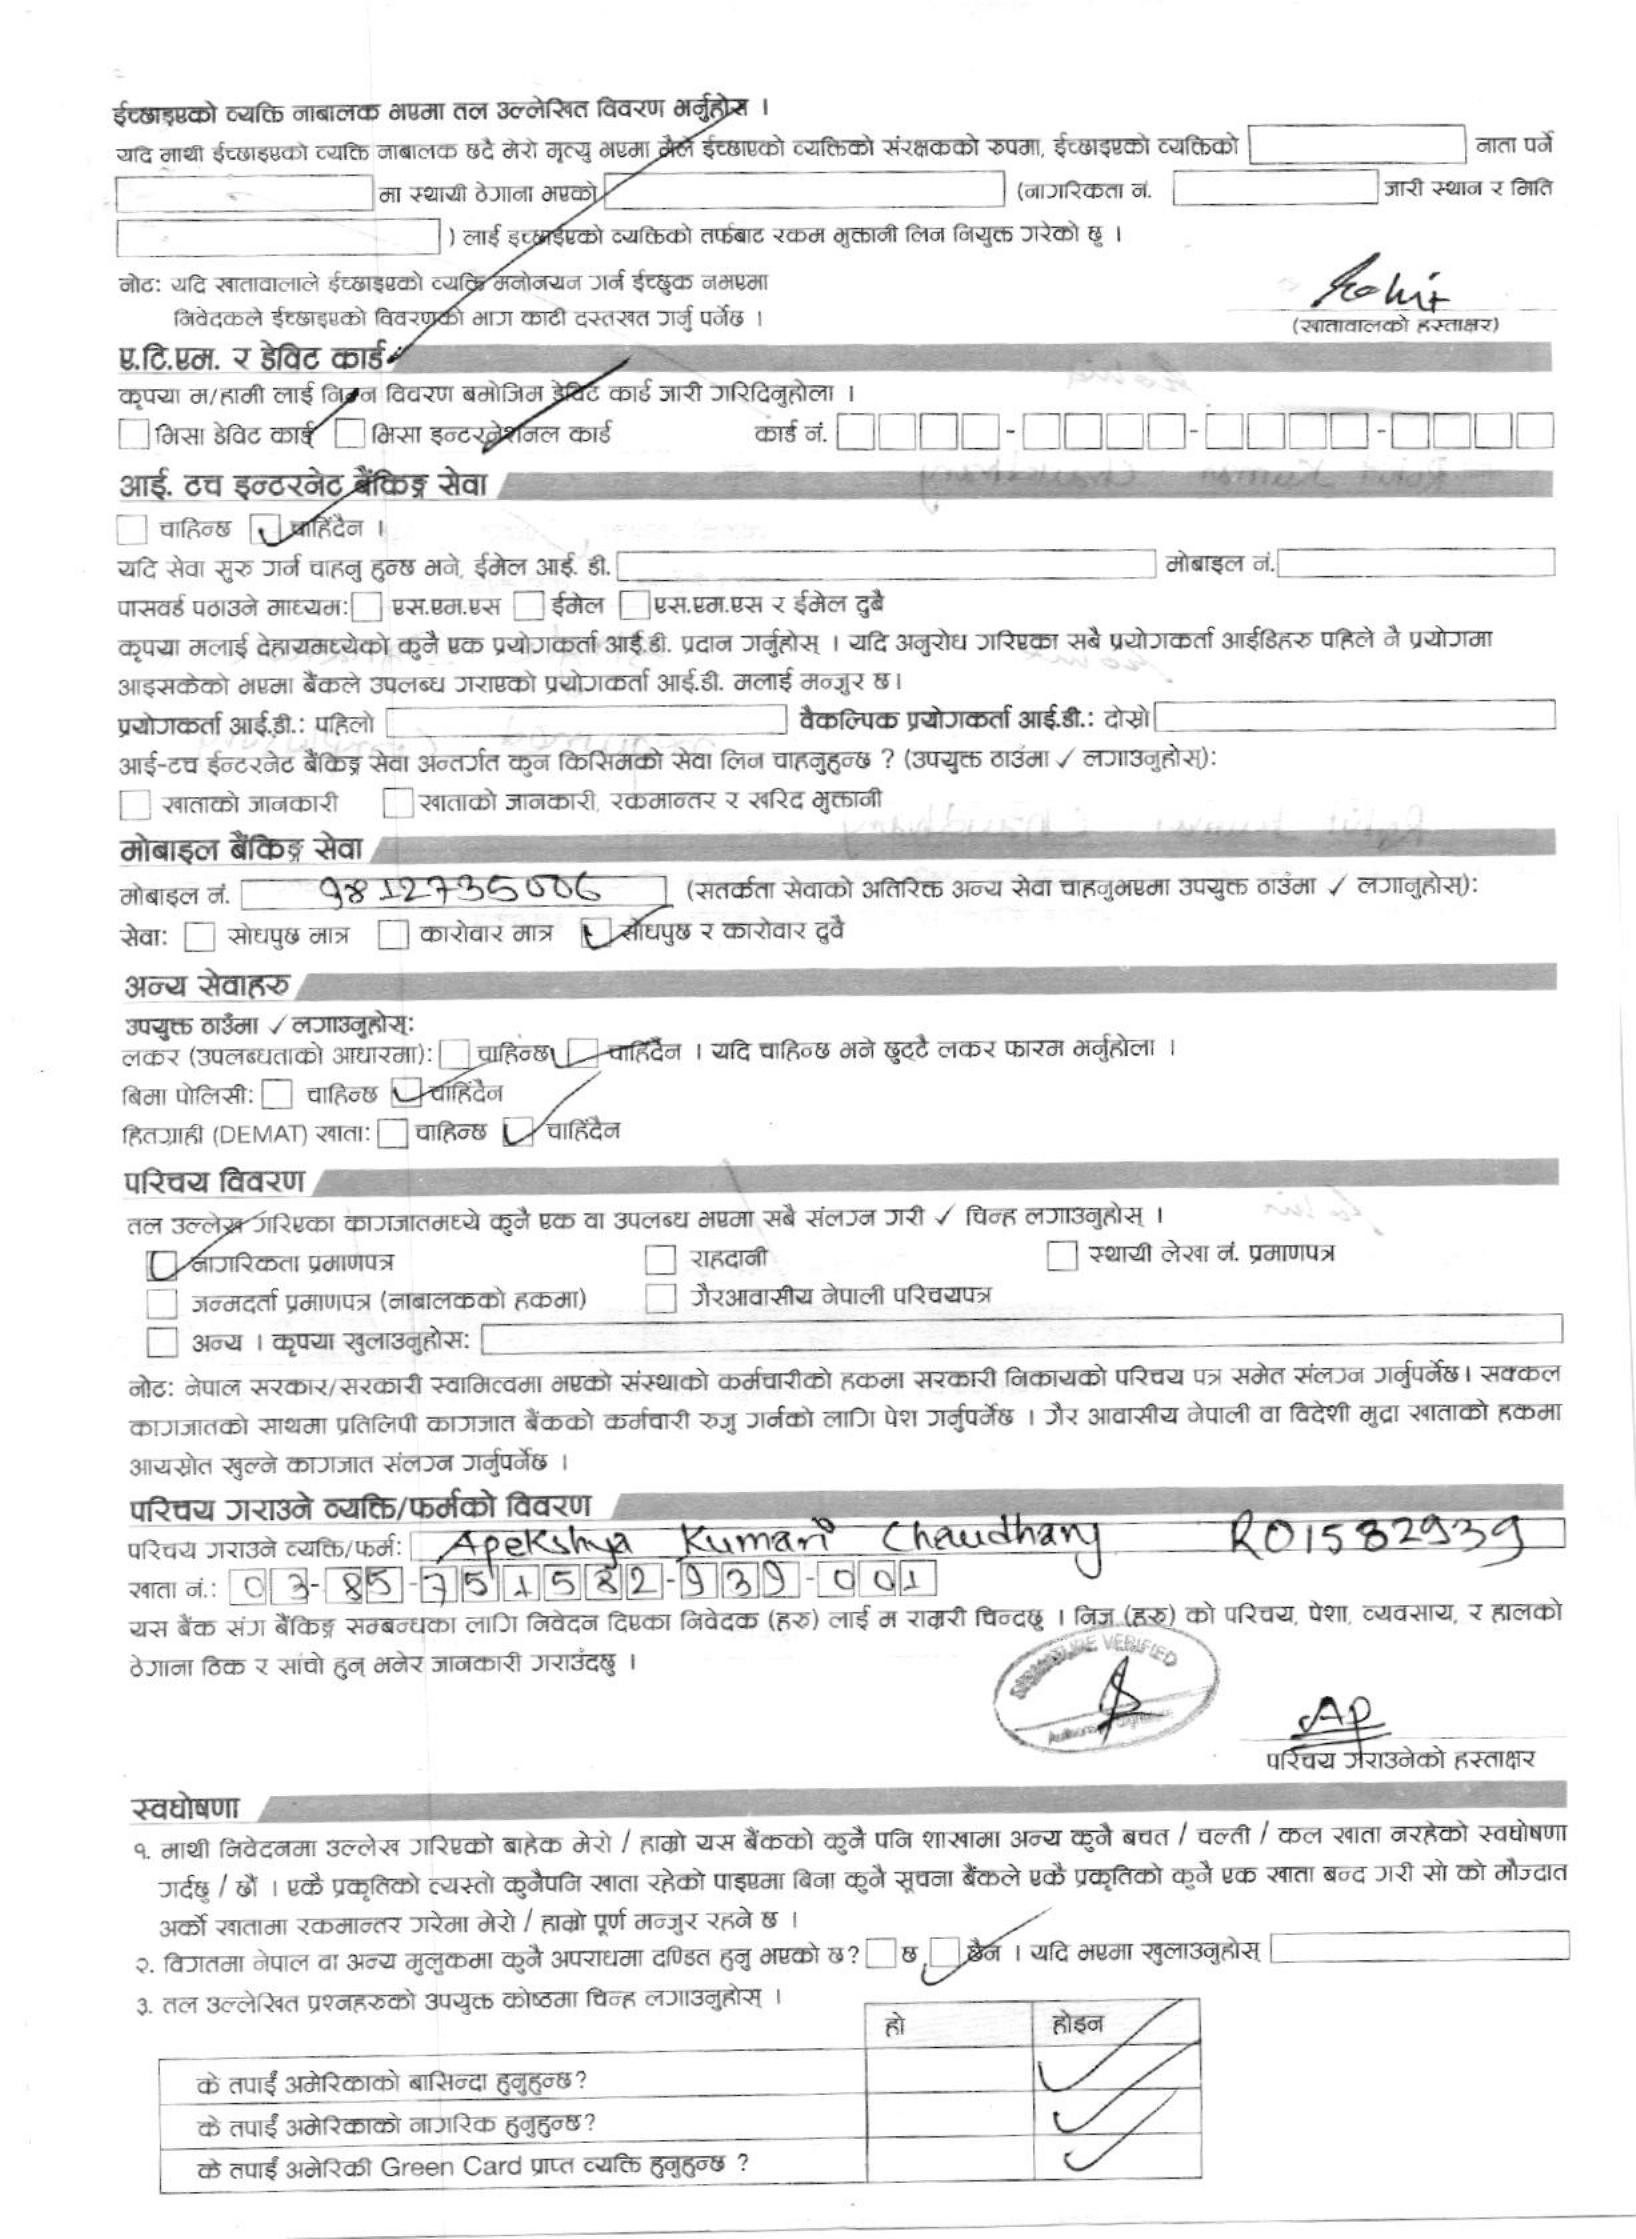 ईच्छाइएको व्यक्ति नाबालक भएमा तल उल्लेखित विवरण भर्नुहोस ।
यदि माथी ईच्छाइएको व्यक्ति नाबालक छदै मेरो मृत्यु भएमा मैले ईच्छाएको व्यक्तिको संरक्षकको रुपमा, ईच्छाइएको व्यक्तिको नाता पर्ने
मा स्थायी ठेगाना भएको (नागरिकता नं. जारी स्थान र मिति
) लाई इच्छाईएको व्यक्तिको तर्फबाट रकम भुक्तानी लिन नियुक्त गरेको छु ।
नोट: यदि खातावालाले ईच्छाइएको व्यक्ति मनोनयन गर्न ईच्छुक नभएमा
निवेदकले ईच्छाइएको विवरणको भाग काटी दस्तखत गर्नु पर्नेछ ।
Rohit
(खातावालको हस्ताक्षर)
ए.टि.एम. र डेविट कार्ड
कृपया म/हामी लाई निम्न विवरण बमोजिम डेविट कार्ड जारी गरिदिनुहोला ।
भिसा डेविट कार्ड भिसा इन्टरनेशनल कार्ड कार्ड नं. - - -
आई. टच इन्टरनेट बैंकिङ्ग सेवा
चाहिन्छ ✓ चाहिंदैन ।
यदि सेवा सुरु गर्न चाहनु हुन्छ भने, ईमेल आई. डी. मोबाइल नं.
पासवर्ड पठाउने माध्यम: एस.एम.एस ईमेल एस.एम.एस र ईमेल दुबै
कृपया मलाई देहायमध्येको कुनै एक प्रयोगकर्ता आई.डी. प्रदान गर्नुहोस् । यदि अनुरोध गरिएका सबै प्रयोगकर्ता आईडिहरु पहिले नै प्रयोगमा
आइसकेको भएमा बैंकले उपलब्ध गराएको प्रयोगकर्ता आई.डी. मलाई मन्जुर छ।
प्रयोगकर्ता आई.डी.: पहिलो वैकल्पिक प्रयोगकर्ता आई.डी.: दोस्रो
आई-टच ईन्टरनेट बैंकिङ्ग सेवा अन्तर्गत कुन किसिमको सेवा लिन चाहनुहुन्छ ? (उपयुक्त ठाउंमा ✓ लगाउनुहोस्):
खाताको जानकारी खाताको जानकारी, रकमान्तर र खरिद भुक्तानी
मोबाइल बैंकिङ्ग सेवा
मोबाइल नं. 9812735006 (सतर्कता सेवाको अतिरिक्त अन्य सेवा चाहनुभएमा उपयुक्त ठाउंमा ✓ लगानुहोस्):
सेवा: सोधपुछ मात्र कारोवार मात्र ✓ सोधपुछ र कारोवार दुवै
अन्य सेवाहरु
उपयुक्त ठाउँमा ✓ लगाउनुहोस्:
लकर (उपलब्धताको आधारमा): चाहिन्छ ✓ चाहिंदैन । यदि चाहिन्छ भने छुट्टै लकर फारम भर्नुहोला ।
बिमा पोलिसी: चाहिन्छ ✓ चाहिंदैन
हितग्राही (DEMAT) खाता: चाहिन्छ ✓ चाहिंदैन
परिचय विवरण
तल उल्लेख गरिएका कागजातमध्ये कुनै एक वा उपलब्ध भएमा सबै संलग्न गरी ✓ चिन्ह लगाउनुहोस् ।
✓ नागरिकता प्रमाणपत्र राहदानी स्थायी लेखा नं. प्रमाणपत्र
जन्मदर्ता प्रमाणपत्र (नाबालकको हकमा) गैरआवासीय नेपाली परिचयपत्र
अन्य । कृपया खुलाउनुहोस:
नोट: नेपाल सरकार/सरकारी स्वामित्वमा भएको संस्थाको कर्मचारीको हकमा सरकारी निकायको परिचय पत्र समेत संलग्न गर्नुपर्नेछ। सक्कल
कागजातको साथमा प्रतिलिपी कागजात बैंकको कर्मचारी रुजु गर्नको लागि पेश गर्नुपर्नेछ । गैर आवासीय नेपाली वा विदेशी मुद्रा खाताको हकमा
आयस्रोत खुल्ने कागजात संलग्न गर्नुपर्नेछ ।
परिचय गराउने व्यक्ति/फर्मको विवरण
परिचय गराउने व्यक्ति/फर्म: Apekshya Kumari Chaudhary R01582939
खाता नं.: 03-85-751582-939-001
यस बैंक संग बैंकिङ्ग सम्बन्धका लागि निवेदन दिएका निवेदक (हरु) लाई म राम्ररी चिन्दछु । निज (हरु) को परिचय, पेशा, व्यवसाय, र हालको
ठेगाना ठिक र सांचो हुन् भनेर जानकारी गराउँदछु ।
SIGNATURE VERIFIED
AP
परिचय गराउनेको हस्ताक्षर
स्वघोषणा
१. माथी निवेदनमा उल्लेख गरिएको बाहेक मेरो / हाम्रो यस बैंकको कुनै पनि शाखामा अन्य कुनै बचत / चल्ती / कल खाता नरहेको स्वघोषणा
गर्दछु / छौं । एकै प्रकृतिको त्यस्तो कुनैपनि खाता रहेको पाइएमा बिना कुनै सूचना बैंकले एकै प्रकृतिको कुनै एक खाता बन्द गरी सो को मौज्दात
अर्को खातामा रकमान्तर गरेमा मेरो / हाम्रो पूर्ण मन्जुर रहने छ ।
२. विगतमा नेपाल वा अन्य मुलुकमा कुनै अपराधमा दण्डित हुनु भएको छ? छ ✓ छैन । यदि भएमा खुलाउनुहोस्
३. तल उल्लेखित प्रश्नहरुको उपयुक्त कोष्ठमा चिन्ह लगाउनुहोस् ।
हो होइन
के तपाईं अमेरिकाको बासिन्दा हुनुहुन्छ? ✓
के तपाईं अमेरिकाको नागरिक हुनुहुन्छ? ✓
के तपाईं अमेरिकी Green Card प्राप्त व्यक्ति हुनुहुन्छ ? ✓